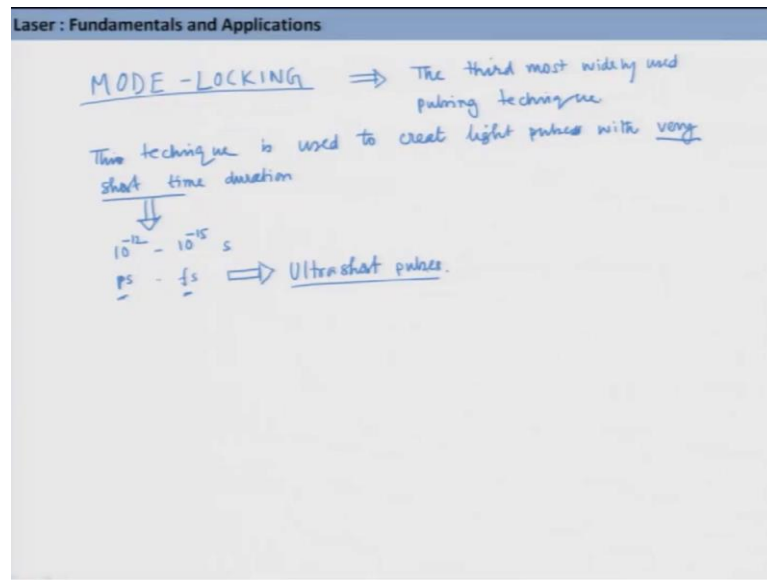 Laser : Fundamentals and Applications
MODE-LOCKING ⇒ The third most widely used
pulsing technique
This technique is used to creat light pulses with very
short time duration
⇓
10⁻¹² - 10⁻¹⁵ s
ps - fs ⇒ Ultrashort pulses.